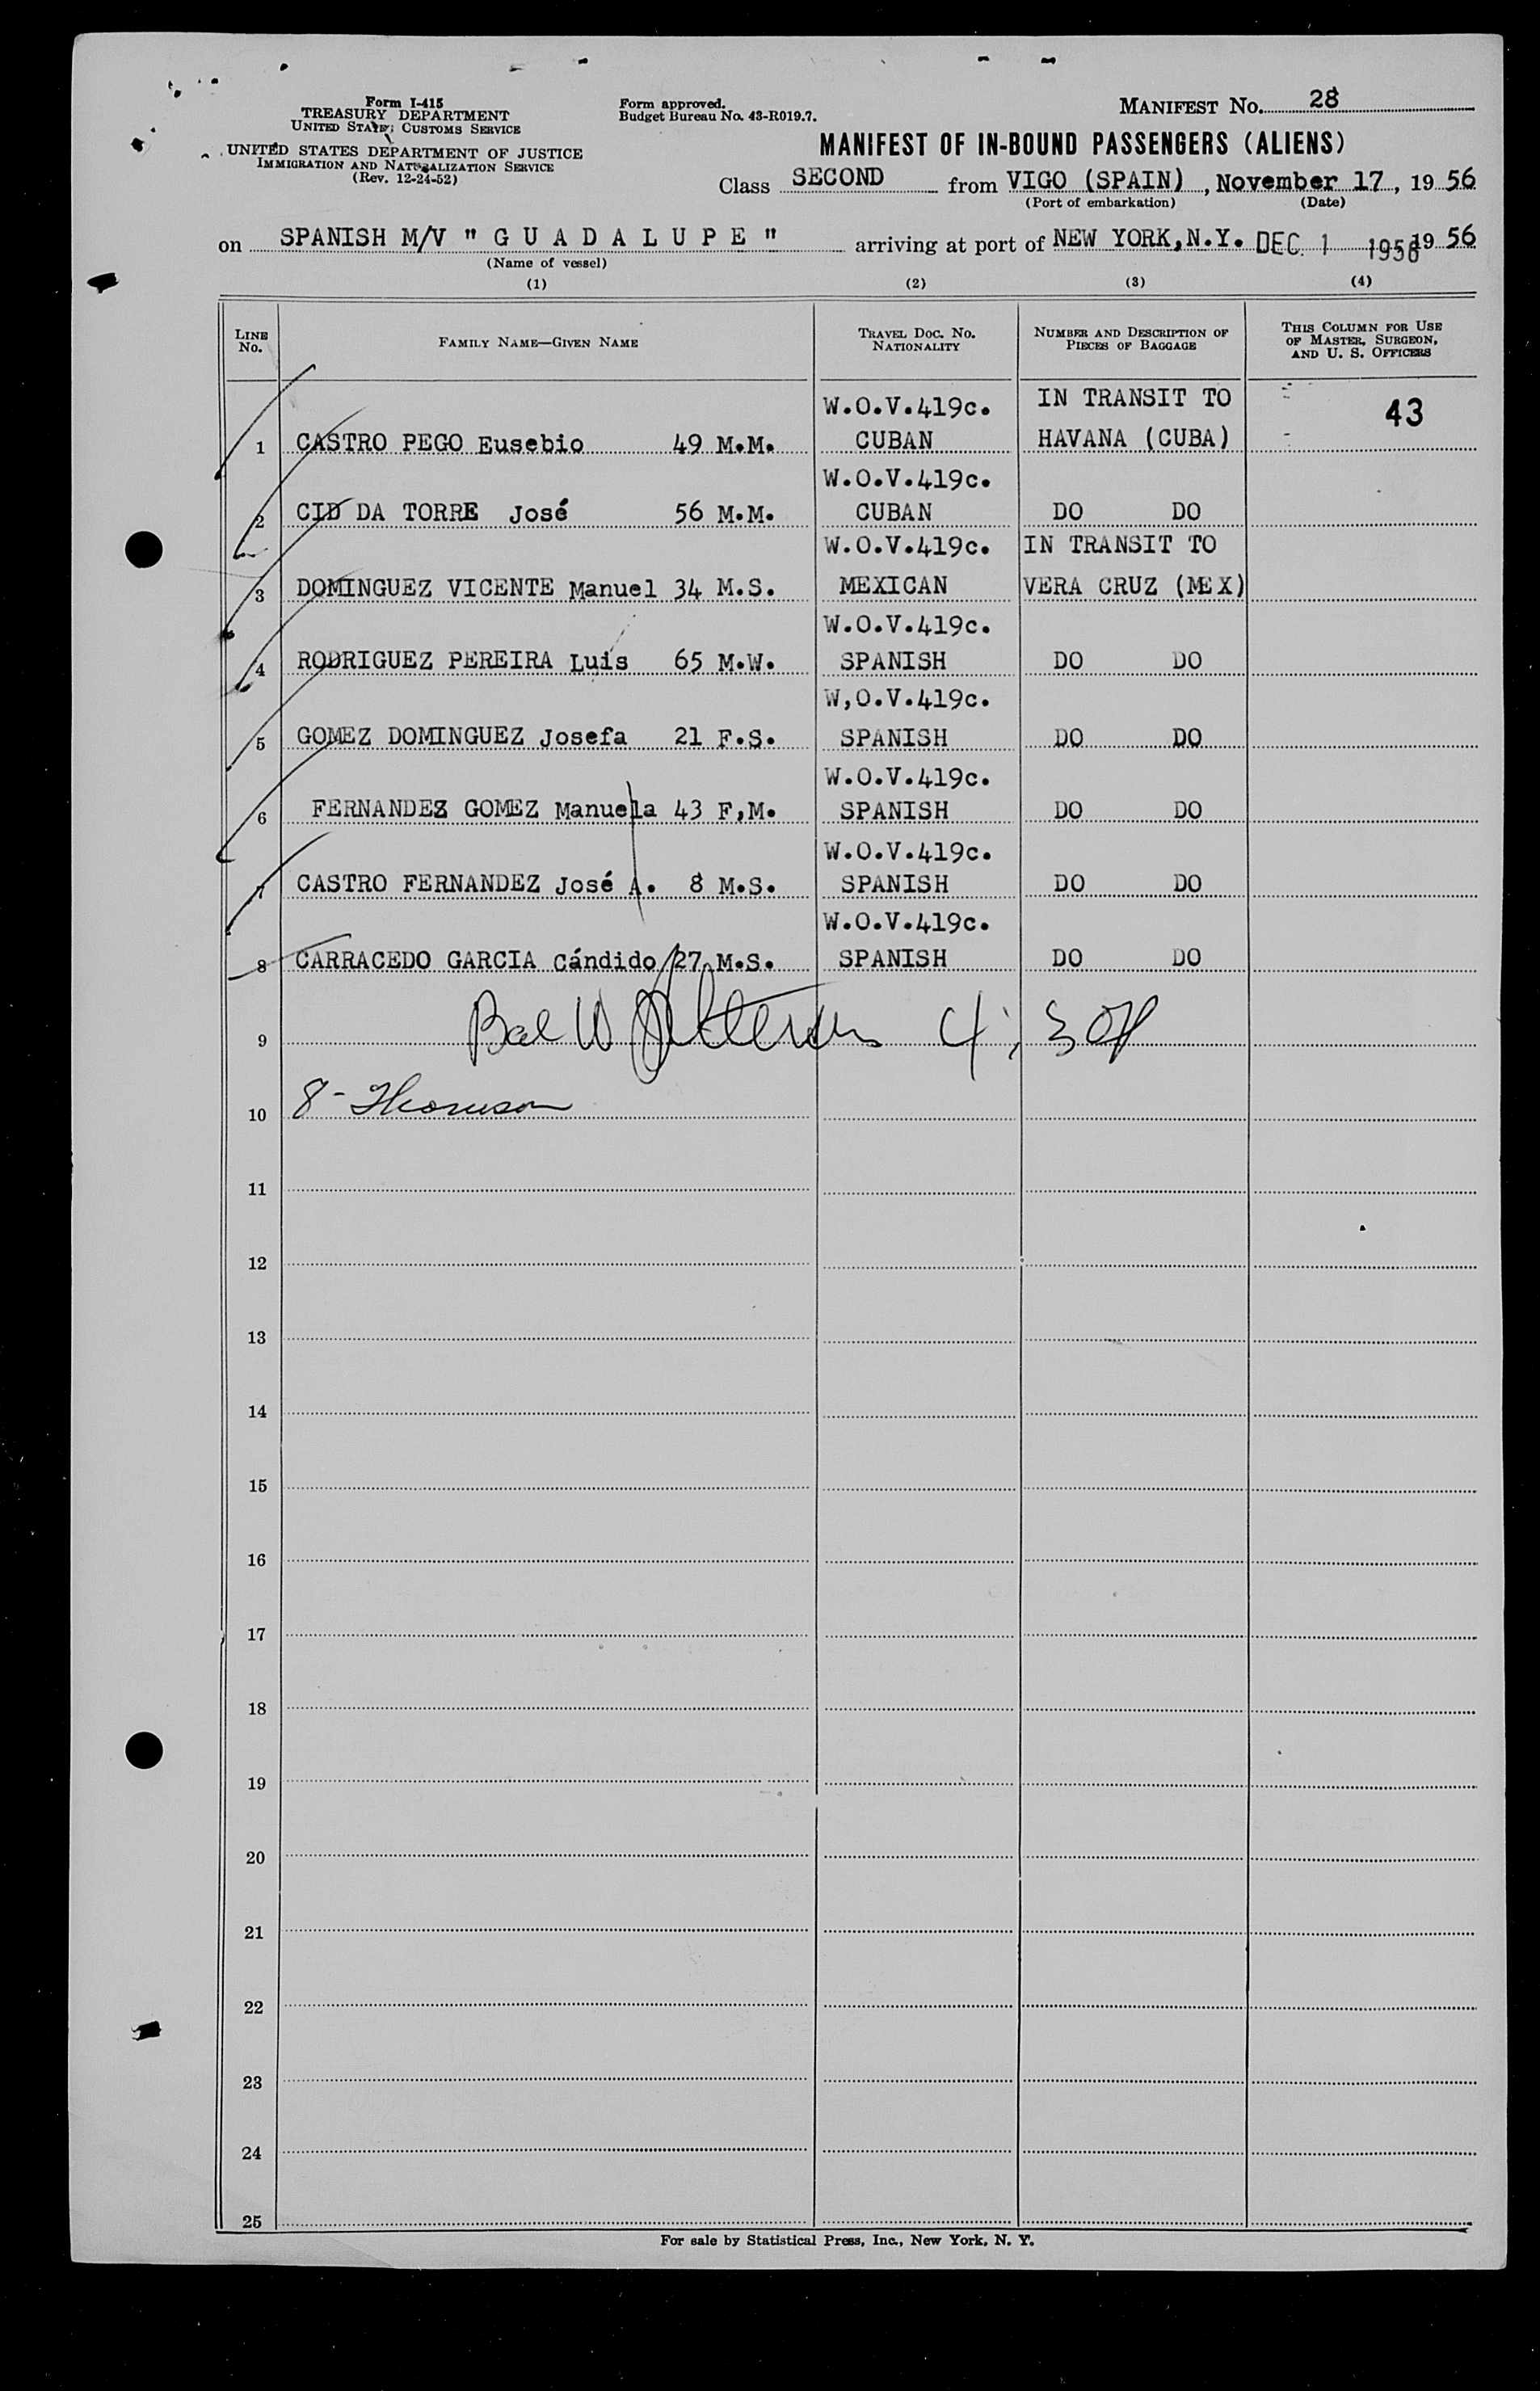 Form I-415
TREASURY DEPARTMENT
UNITED STATES CUSTOMS SERVICE
UNITED STATES DEPARTMENT OF JUSTICE
IMMIGRATION AND NATURALIZATION SERVICE
(Rev. 12-24-52)
Form approved.
Budget Bureau No. 43-R019.7.
MANIFEST No. 28
MANIFEST OF IN-BOUND PASSENGERS (ALIENS)
Class SECOND from VIGO (SPAIN), November 17, 19 56
(Port of embarkation) (Date)
on SPANISH M/V " G U A D A L U P E " arriving at port of NEW YORK, N.Y. DEC 1 1956 19 56
(Name of vessel)
(1) (2) (3) (4)
LINE No. FAMILY NAME—GIVEN NAME TRAVEL DOC. NO. NATIONALITY NUMBER AND DESCRIPTION OF PIECES OF BAGGAGE THIS COLUMN FOR USE OF MASTER, SURGEON, AND U. S. OFFICERS
W.O.V.419c. IN TRANSIT TO 43
1 CASTRO PEGO Eusebio 49 M.M. CUBAN HAVANA (CUBA)
W.O.V.419c.
2 CID DA TORRE José 56 M.M. CUBAN DO DO
W.O.V.419c. IN TRANSIT TO
3 DOMINGUEZ VICENTE Manuel 34 M.S. MEXICAN VERA CRUZ (MEX)
W.O.V.419c.
4 RODRIGUEZ PEREIRA Luis 65 M.W. SPANISH DO DO
W,O.V.419c.
5 GOMEZ DOMINGUEZ Josefa 21 F.S. SPANISH DO DO
W.O.V.419c.
6 FERNANDEZ GOMEZ Manuela 43 F,M. SPANISH DO DO
W.O.V.419c.
7 CASTRO FERNANDEZ José A. 8 M.S. SPANISH DO DO
W.O.V.419c.
8 CARRACEDO GARCIA Cándido 27 M.S. SPANISH DO DO
9
10 8-
11
12
13
14
15
16
17
18
19
20
21
22
23
24
25
For sale by Statistical Press, Inc., New York, N. Y.